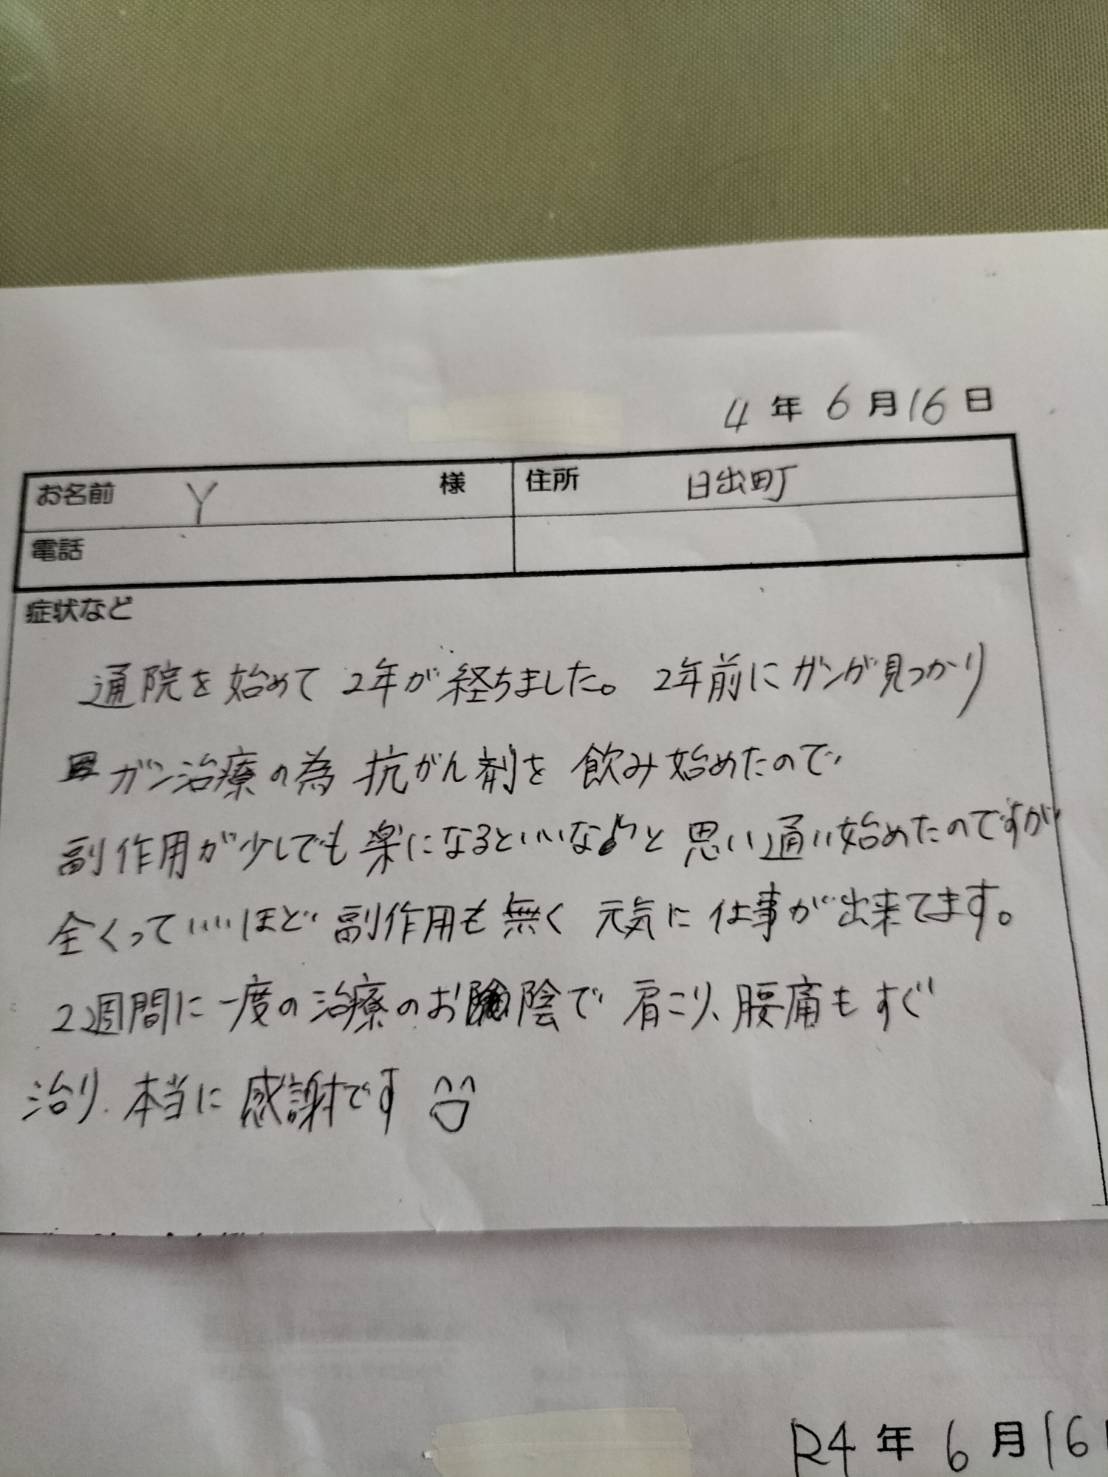 4年6月16日
お名前 Y 様 住所 日出町
電話
症状など
通院を始めて2年が経ちました。2年前にガンが見つかり
ガン治療の為抗がん剤を飲み始めたので
副作用が少しでも楽になるといいなぁと思い通い始めたのですが
全くっていいほど副作用も無く元気に仕事が出来てます。
2週間に一度の治療のお陰で肩こり、腰痛もすぐ
治り、本当に感謝です
R4年6月16